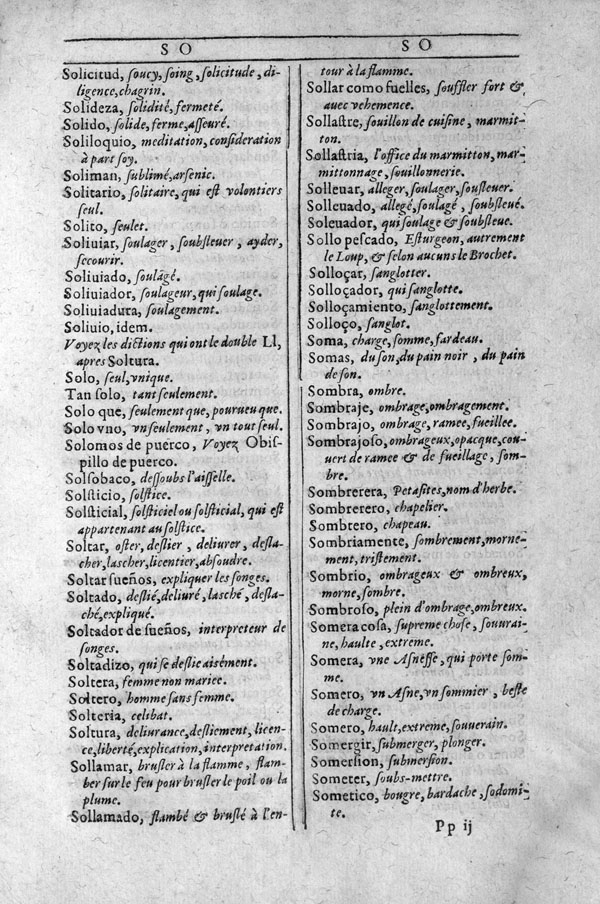 SO
SO
Solicitud, ſoucy, ſoing, ſolicitude, di-
ligence, chagrin.
Solideza, ſolidité, fermeté.
Solido, ſolide, ferme, aſſeuré.
Soliloquio, meditation, conſideration
à part ſoy.
Soliman, ſublimé, arſenic.
Solitario, ſolitaire, qui eſt volontiers
ſeul.
Solito, ſeulet.
Soliuiar, ſoulager, ſoubſleuer, ayder,
ſecourir.
Soliuiado, ſoulagé.
Soliuiador, ſoulageur, qui ſoulage.
Soliuiadura, ſoulagement.
Soliuio, idem.
Voyez les dictions qui ont le double Ll,
apres Soltura.
Solo, ſeul, vnique.
Tan ſolo, tant ſeulement.
Solo que, ſeulement que, pourueu que.
Solo vno, vn ſeulement, vn tout ſeul.
Solomos de puerco, Voyez Obiſ-
pillo de puerco.
Solſobaco, deſſoubs l'aiſſelle.
Solſticio, ſolſtice.
Solſticial, ſolſticiel ou ſolſticial, qui eſt
appartenant au ſolſtice.
Soltar, oſter, deſlier, deliurer, deſla-
cher, laſcher, licentier, abſoudre.
Soltar ſueños, expliquer les ſonges.
Soltado, deſlié, deliuré, laſché, deſla-
ché, expliqué.
Soltador de ſueños, interpreteur de
ſonges.
Soltadizo, qui ſe deſlie aisément.
Soltera, femme non mariee.
Soltero, homme ſans femme.
Solteria, celibat.
Soltura, deliurance, deſliement, licen-
ce, liberté, explication, interpretation.
Sollamar, bruſler à la flamme, flam-
ber ſur le feu pour bruſler le poil ou la
plume.
Sollamado, flambé & bruſlé à l'en-
tour à la flamme.
Sollar como fuelles, ſouffler fort &
auec vehemence.
Sollaſtre, ſouillon de cuiſine, marmit-
ton.
Sollaſtria, l'office du marmitton, mar-
mittonnage, ſouillonnerie.
Solleuar, alleger, ſoulager, ſouſleuer.
Solleuado, allegé, ſoulagé, ſoubſleué.
Soleuador, qui ſoulage & ſoubſleue.
Sollo peſcado, Eſturgeon, autrement
le Loup, & ſelon aucuns le Brochet.
Solloçar, ſanglotter.
Solloçador, qui ſanglotte.
Solloçamiento, ſanglottement.
Solloço, ſanglot.
Soma, charge, ſomme, fardeau.
Somas, du ſon, du pain noir, du pain
de ſon.
Sombra, ombre.
Sombraje, ombrage, ombragement.
Sombrajo, ombrage, ramee, fueillee.
Sombrajoſo, ombrageux, opacque, cou-
uert de ramee & de fueillage, ſom-
bre.
Sombrerera, Petaſites, nom d'herbe.
Sombrerero, chapelier.
Sombrero, chapeau.
Sombriamente, ſombrement, morne-
ment, triſtement.
Sombrio, ombrageux & ombreux,
morne, ſombre.
Sombroſo, plein d'ombrage, ombreux.
Somera coſa, ſupreme choſe, ſouuerai-
ne, haulte, extreme.
Somera, vne Aſneſſe, qui porte ſom-
me.
Somero, vn Aſne, vn ſommier, beſte
de charge.
Somero, hault, extreme, ſouuerain.
Somergir, ſubmerger, plonger.
Somerſion, ſubmerſion.
Someter, ſoubs-mettre.
Sometico, bougre, bardache, ſodomi-
te.
Pp ij